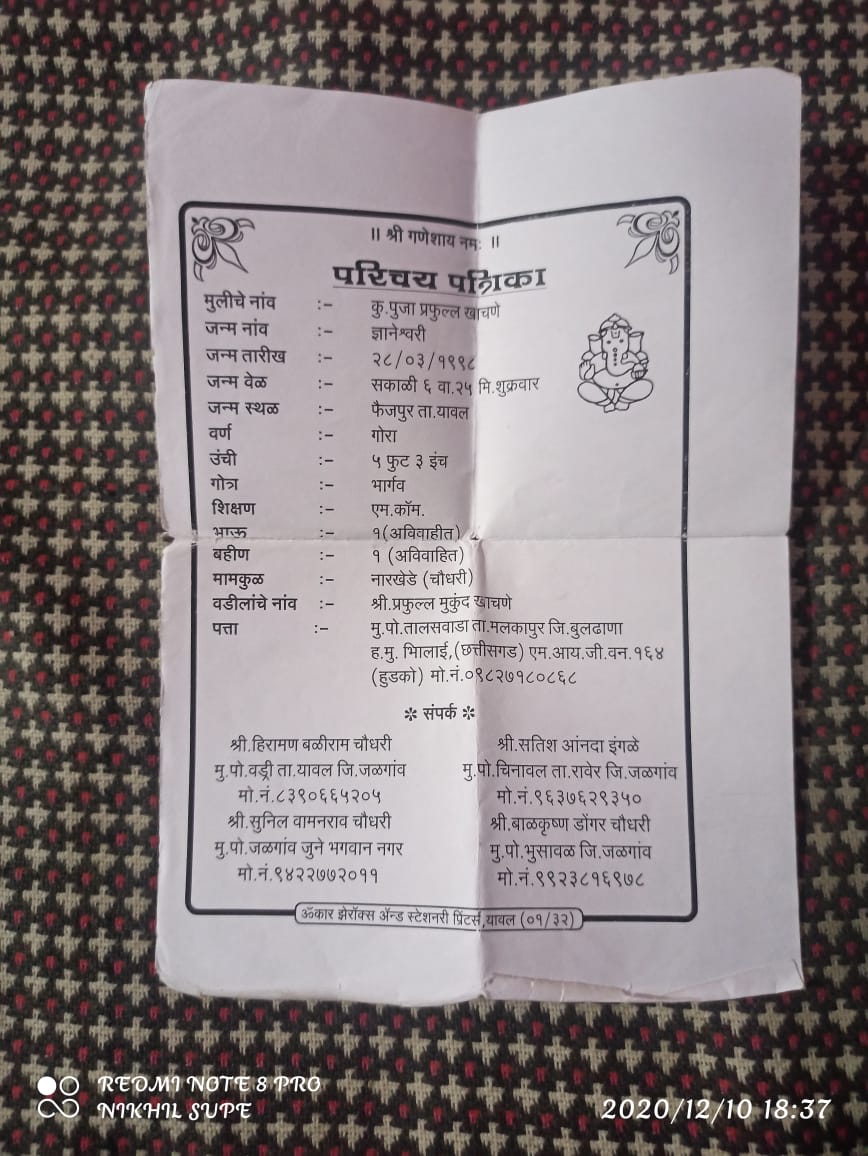 ॥ श्री गणेशाय नमः ॥
परिचय पत्रिका
मुलीचे नांव :- कु.पुजा प्रफुल्ल खाचणे
जन्म नांव :- ज्ञानेश्वरी
जन्म तारीख :- २८/०३/१९९८
जन्म वेळ :- सकाळी ६ वा.२५ मि.शुक्रवार
जन्म स्थळ :- फैजपुर ता.यावल
वर्ण :- गोरा
उंची :- ५ फुट ३ इंच
गोत्र :- भार्गव
शिक्षण :- एम.कॉम.
भाऊ :- १(अविवाहीत)
बहीण :- १ (अविवाहित)
मामकुळ :- नारखेडे (चौधरी)
वडीलांचे नांव :- श्री.प्रफुल्ल मुकुंद खाचणे
पत्ता :- मु.पो.तालसवाडा ता.मलकापुर जि.बुलढाणा
ह.मु. भिालाई,(छत्तीसगड) एम.आय.जी.वन.१६४
(हुडको) मो.नं.०९८२७१८०८६८
✻ संपर्क ✻
श्री.हिरामण बळीराम चौधरी
मु.पो.वड्री ता.यावल जि.जळगांव
मो.नं.८३९०६६५२०५
श्री.सुनिल वामनराव चौधरी
मु.पो.जळगांव जुने भगवान नगर
मो.नं.९४२२७७२०११
श्री.सतिश आंनदा इंगळे
मु.पो.चिनावल ता.रावेर जि.जळगांव
मो.नं.९६३७६२९३५०
श्री.बाळकृष्ण डोंगर चौधरी
मु.पो.भुसावळ जि.जळगांव
मो.नं.९९२३८१६९७८
ॐकार झेरॉक्स ॲन्ड स्टेशनरी प्रिंटर्स,यावल (०१/३२)
REDMI NOTE 8 PRO
NIKHIL SUPE
2020/12/10 18:37